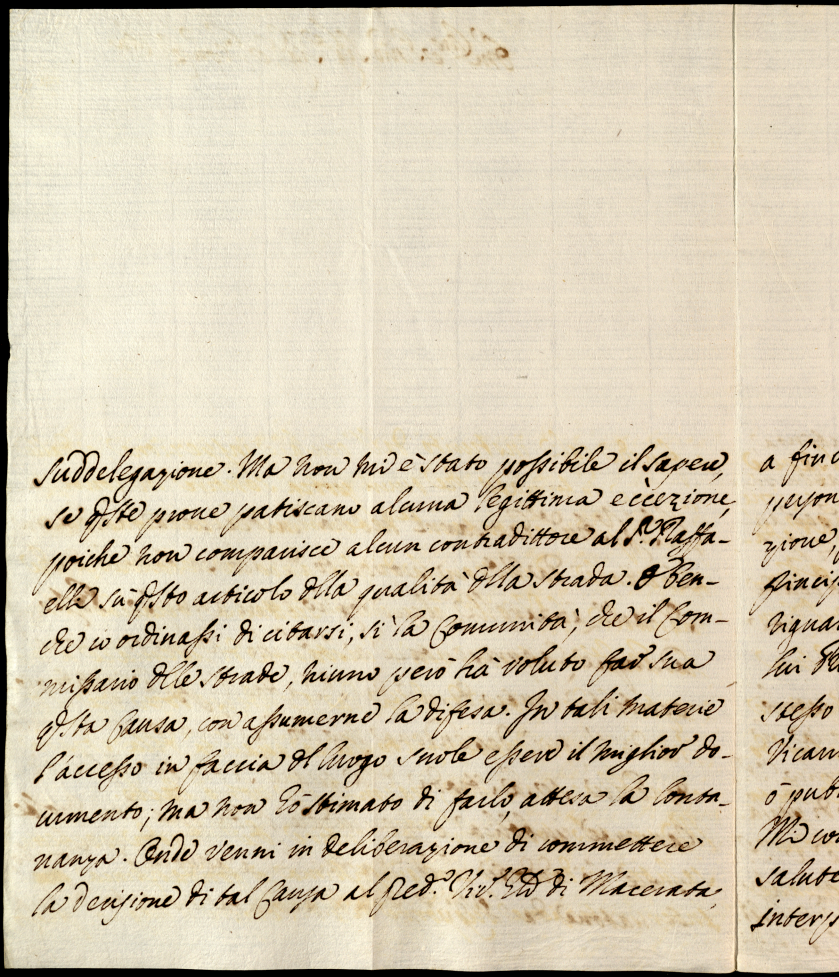 suddelegazione. Ma non mi è stato possibile il sapere,
se qste prove patiscano alcuna legittima eccezione,
poiche non comparisce alcun contradittore al Sr. Raffa-
elle sù qsto articolo dlla qualità dlla strada. E ben-
che io ordinassi di citarsi, sì la Comunità, che il Com-
missario dlle strade, niuno però hà voluto far sua
qsta causa, con assumerne la difesa. In tali materie
l'accesso in faccia dl luogo suole essere il miglior do-
cumento; ma non hò stimato di farlo, attesa la lonta-
nanza. Onde venni in deliberazione di commettere
la decisione di tal causa al Pred.o di Macerata,
a fin
zione,
rigua
lui
stesso
Vicar
ò pub
Mi co
salute